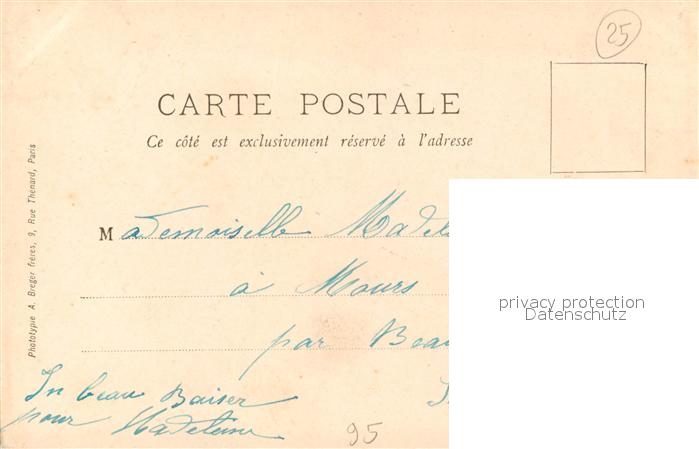 25
CARTE POSTALE
Ce côté est exclusivement réservé à l'adresse
Phototypie A. Breger frères, 9, Rue Thenard, Paris
Mademoiselle Madel
à Mours
par Beau
privacy protection
Datenschutz
Un beau Baiser
pour Madeleine
95